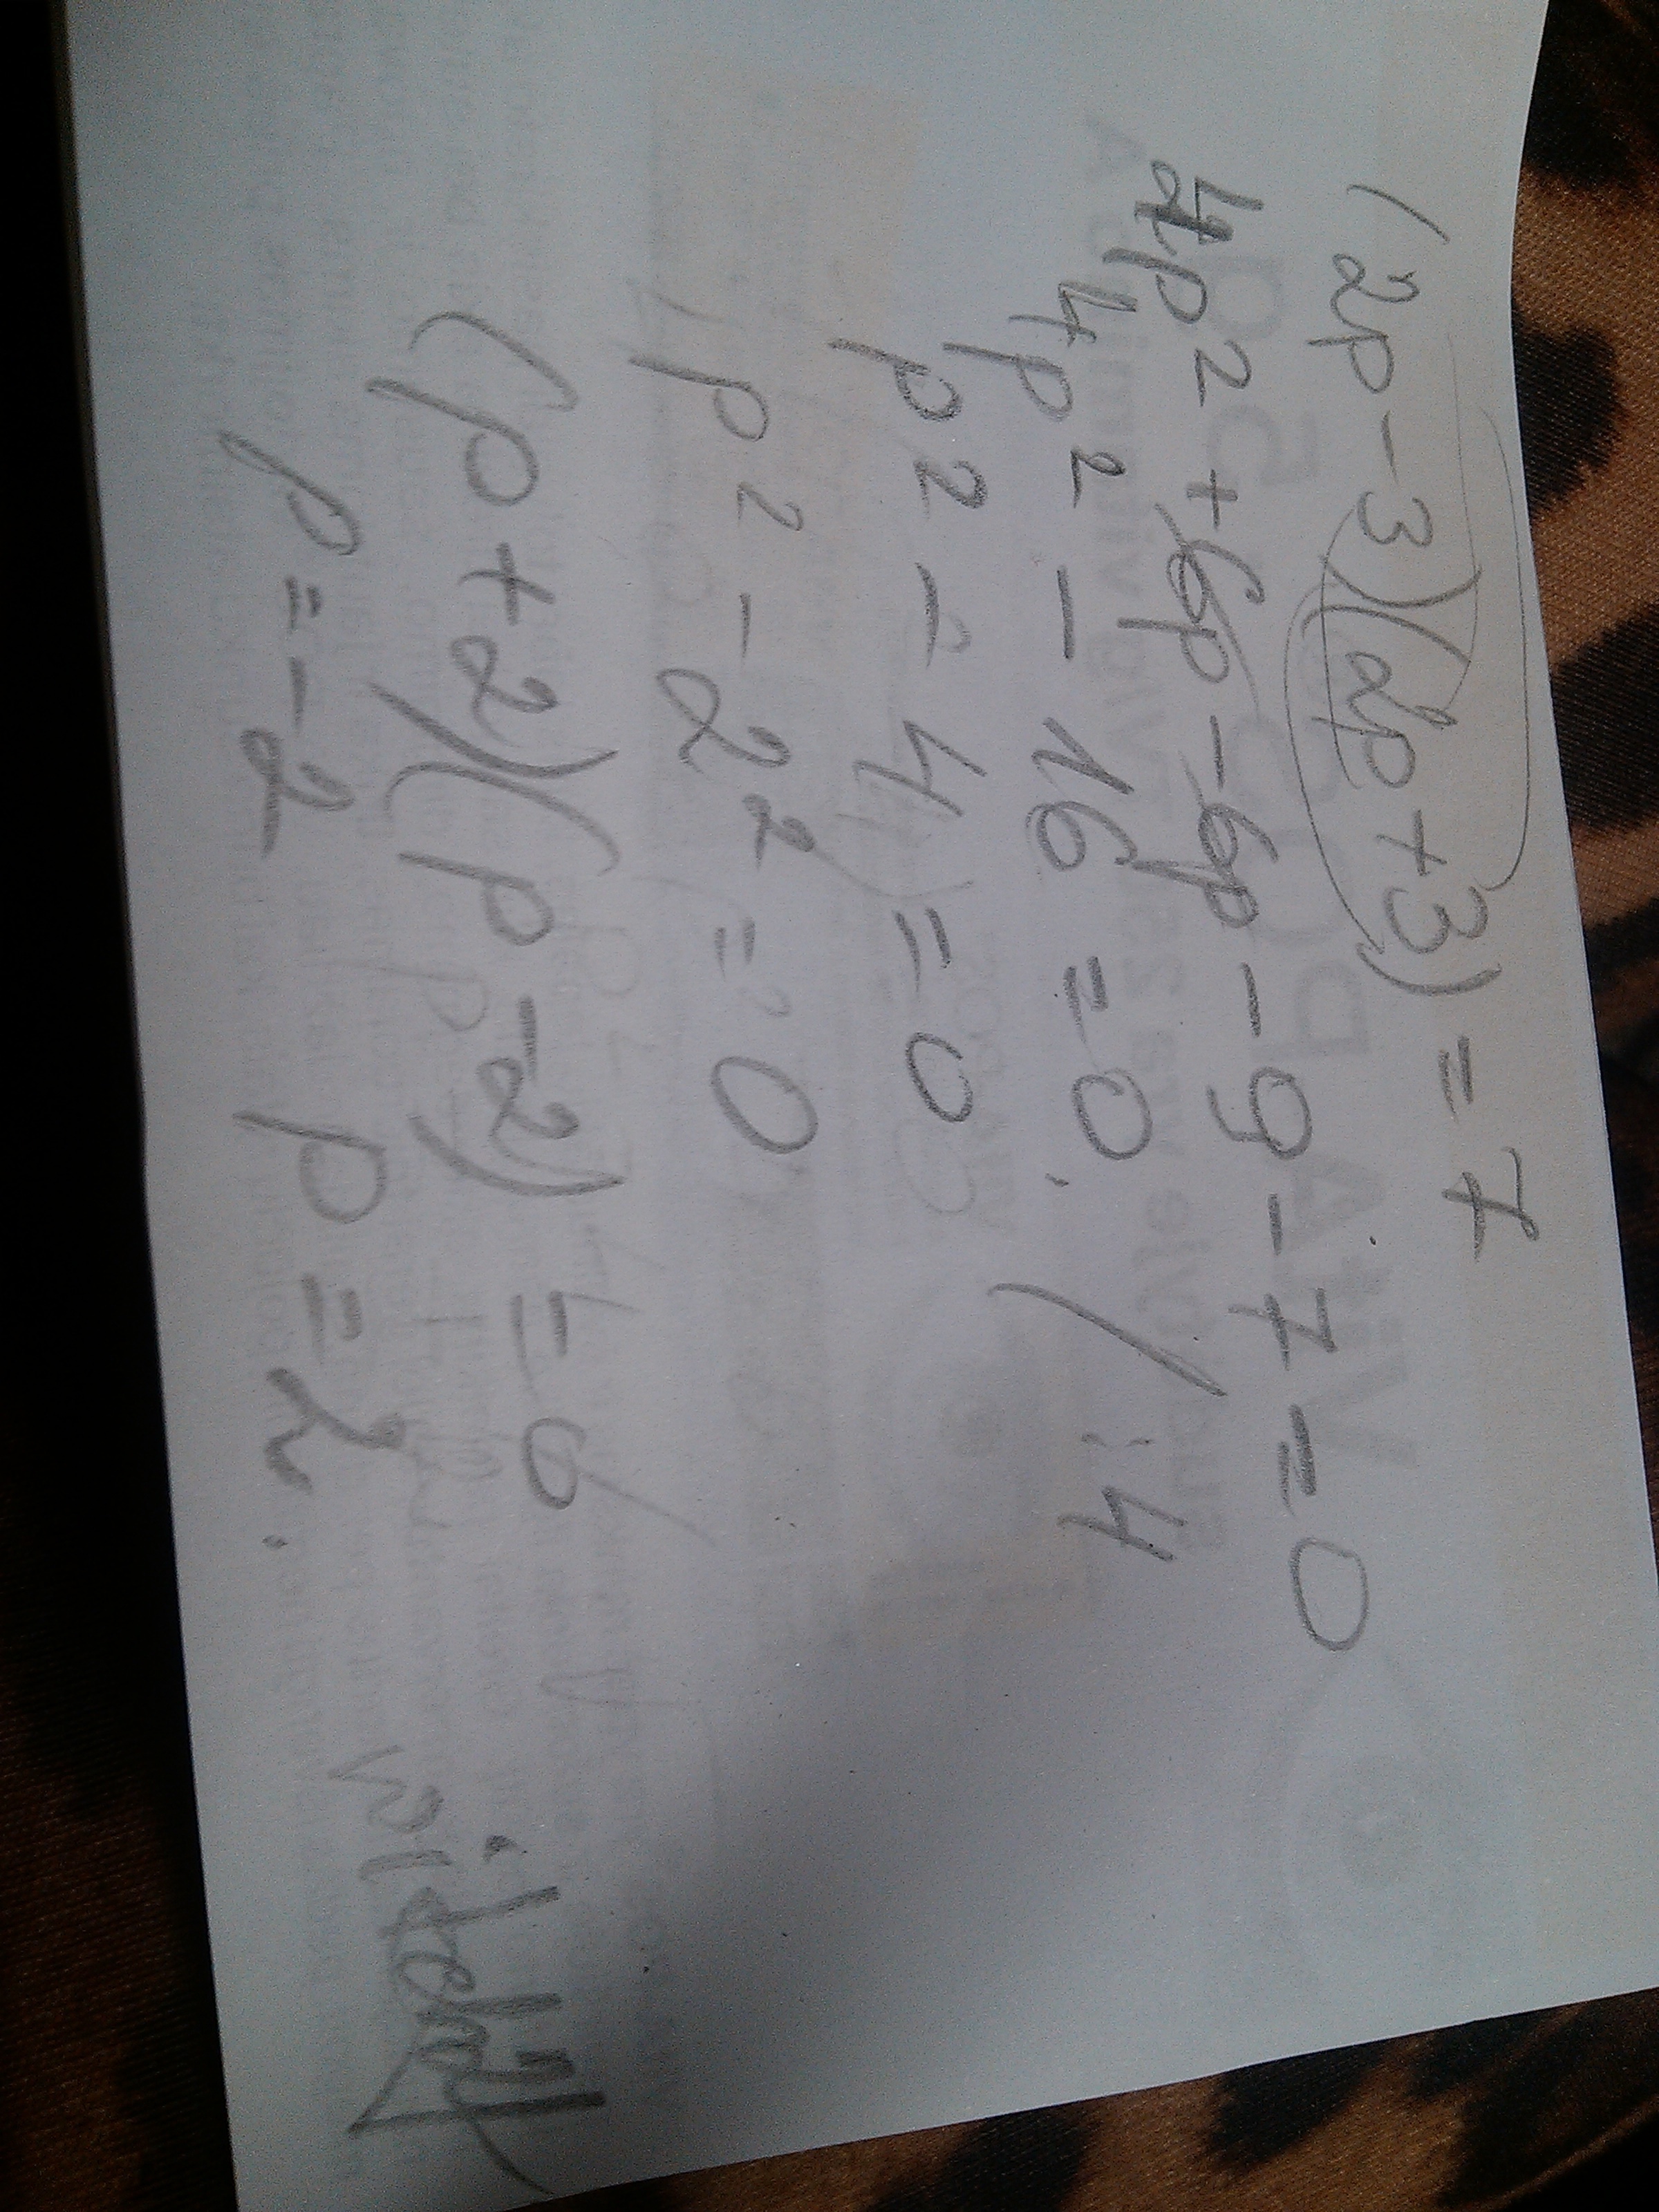 (2p-3)(2p+3) = 7
4p2+6p-6p-9-7=0
4p2-16=0 / :4
p2-4=0
p2-22=0
(p+2)(p-2)=0
p=-2 p=2.